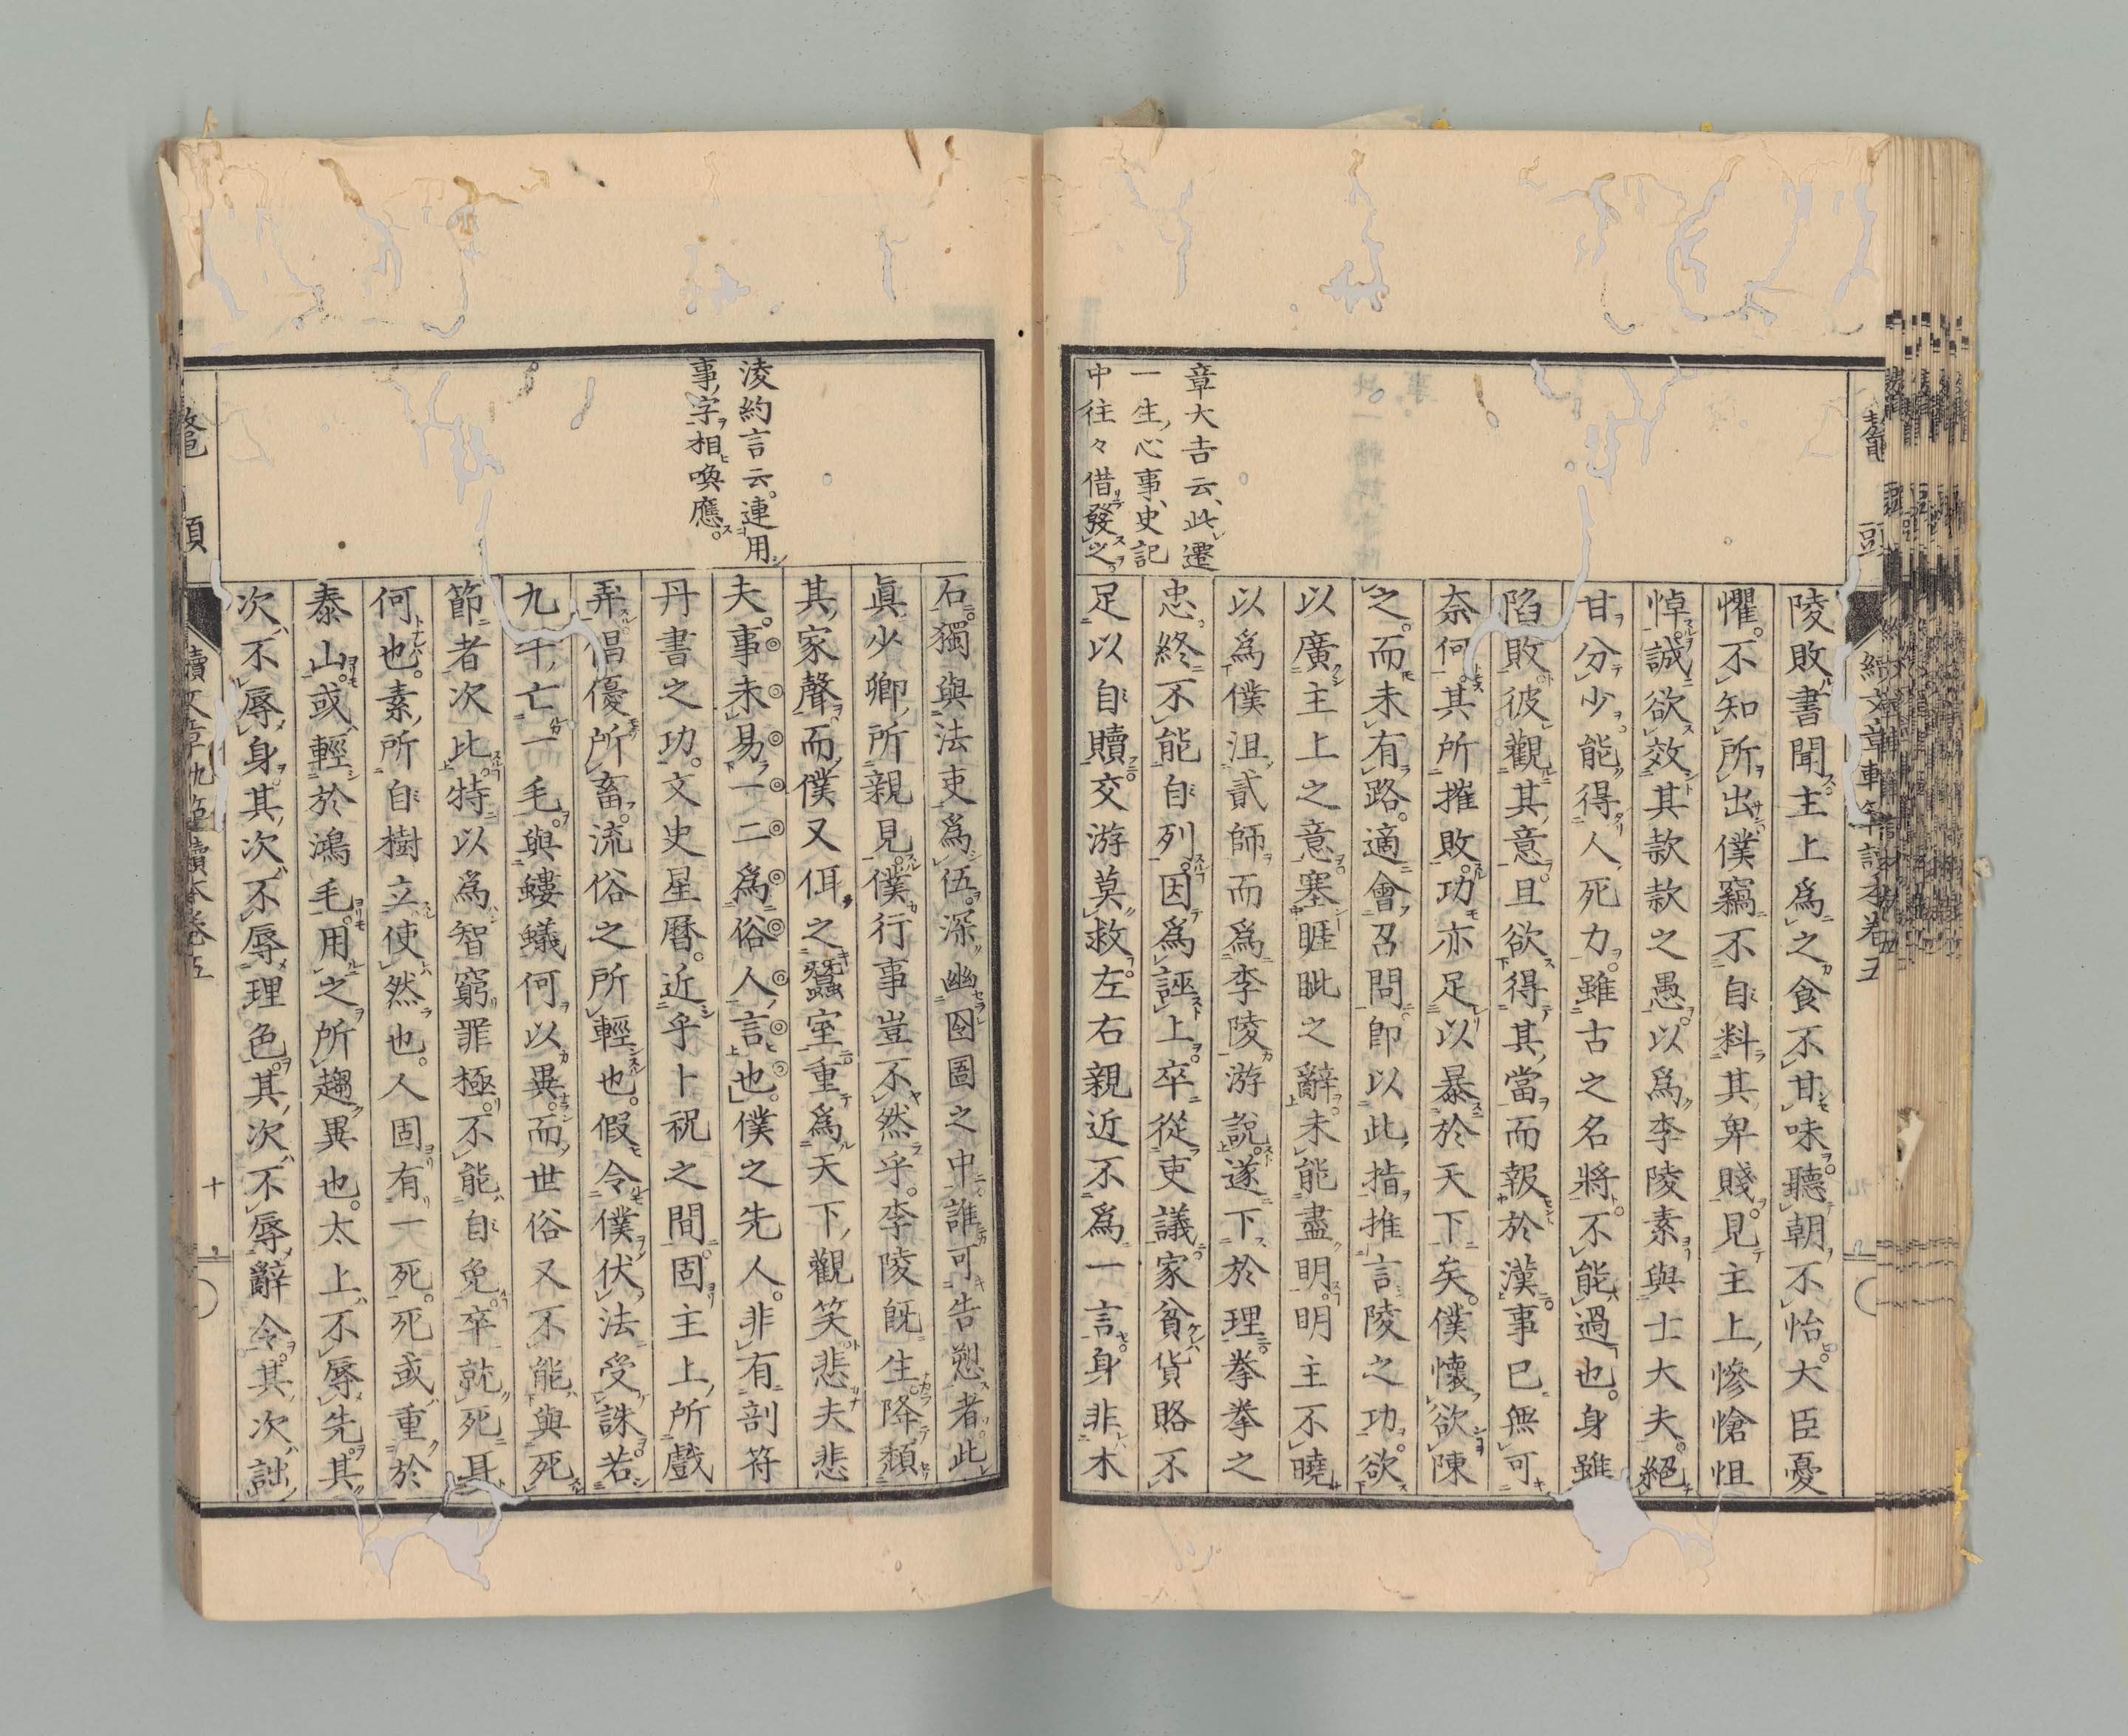 鼇頭
續文章軌範讀本卷五
章大吉云、此遷
一生、心事、史記
中往々借發之
陵敗書聞主上爲之食不甘味聽朝不怡大臣憂
懼。不知所出僕竊不自料其卑賤見主上慘愴怛
悼誠欲效其款款之愚以爲李陵素與士大夫絕
甘分少能得人死力雖古之名將不能過也。身雖
陷敗彼觀其意且欲得其當而報於漢事已無可
奈何其所摧敗功亦足以暴於天下矣。僕懷欲陳
之。而未有路。適會召問卽以此指推言陵之功。欲
以廣主上之意塞睚眦之辭未能盡明。明主不曉
以爲僕沮貳師而爲李陵游說遂下於理拳拳之
忠終不能自列。因爲誣上卒從吏議家貧貨賂不
足以自贖交游莫救左右親近不爲一言身非木
淩約言云。連用
事、字相喚應。
石獨與法吏爲伍。深幽囹圄之中誰可告愬者此
眞少卿所親見。僕行事豈不然乎。李陵旣生降頹
其家聲而僕又佴之蠶室重爲天下觀笑悲夫悲
夫。事未易一二爲俗人言也。僕之先人。非有剖符
丹書之功。文史星曆。近乎卜祝之間固主上所戲
弄倡優所畜流俗之所輕也。假令僕伏法受誅若
九牛亡一毛與螻蟻何以異。而世俗又不能與死
節者次比。特以爲智窮罪極不能自免卒就死耳
何也。素所自樹立使然也。人固有一死。死或重於
泰山。或輕於鴻毛。用之所趨異也。太上不辱先其
次不辱身其次不辱理色其次不辱辭令其次詘
鼇頭
續文章軌範讀本卷五
十